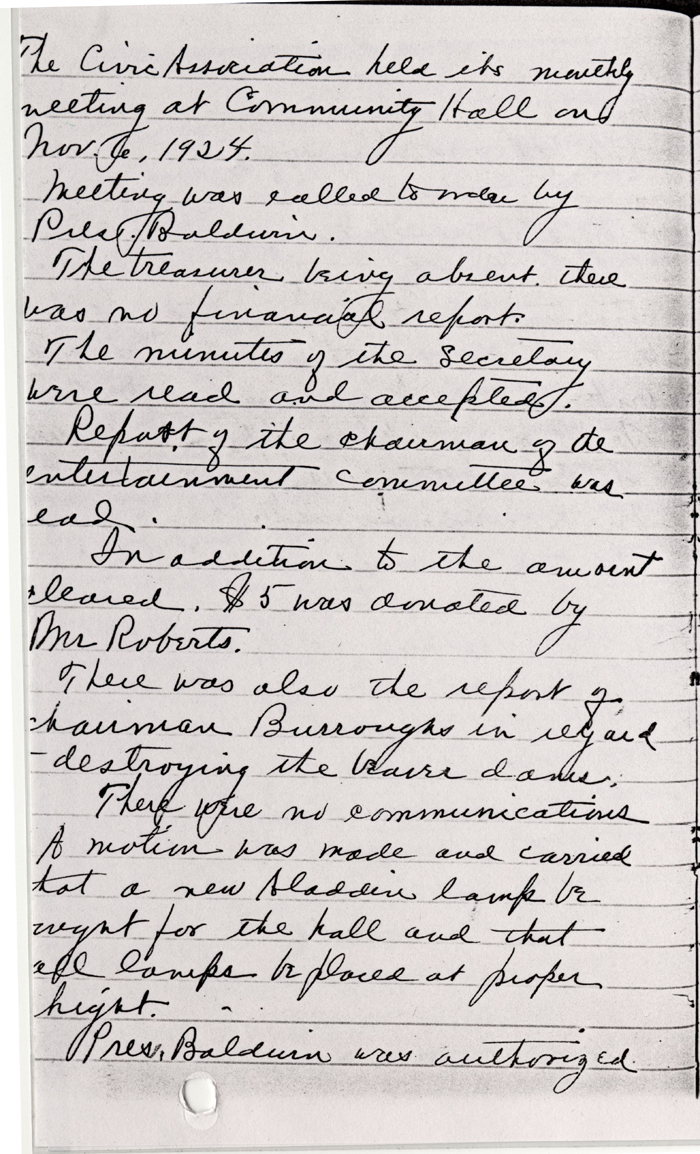 The Civic Association held its monthly
meeting at Community Hall on
Nov. 6, 1924.
Meeting was called to order by
Pres. Baldwin.
The treasurer being absent. there
was no financial report.
The minutes of the Secretary
were read and accepted.
Report of the chairman of the
entertainment committee was
ead.
In addition to the amount
cleared, $5 was donated by
Mr Roberts.
There was also the report of
chairman Burroughs in regard
destroying the beaver dams.
There were no communications
A motion was made and carried
that a new Aladdin lamp be
ought for the hall and that
all lamps be placed at proper
hight.
Pres. Baldwin was authorized